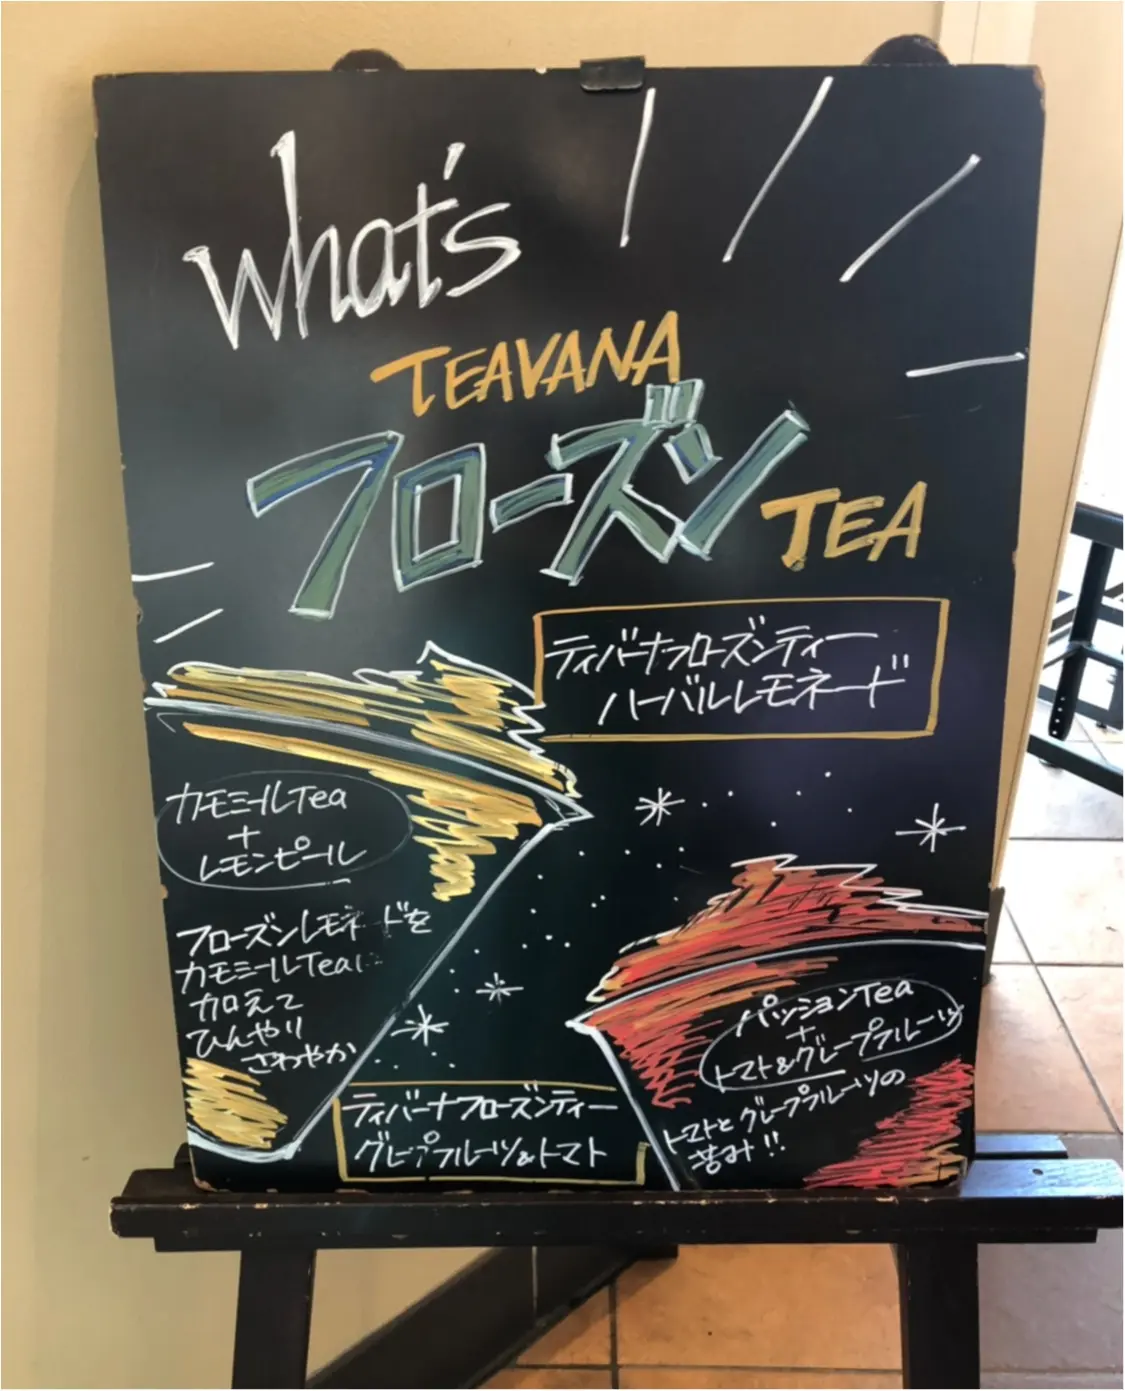 what's
TEAVANA
フローズン
TEA
ティバーナフローズンティー
ハーバルレモネード
カモミールTea
+
レモンピール
フローズンレモネードを
カモミールTeaに
加えて
ひんやり
さわやか
パッションTea
+
トマト&グレープフルーツ
トマトとグレープフルーツの
苦み!!
ティバーナフローズンティー
グレープフルーツ&トマト